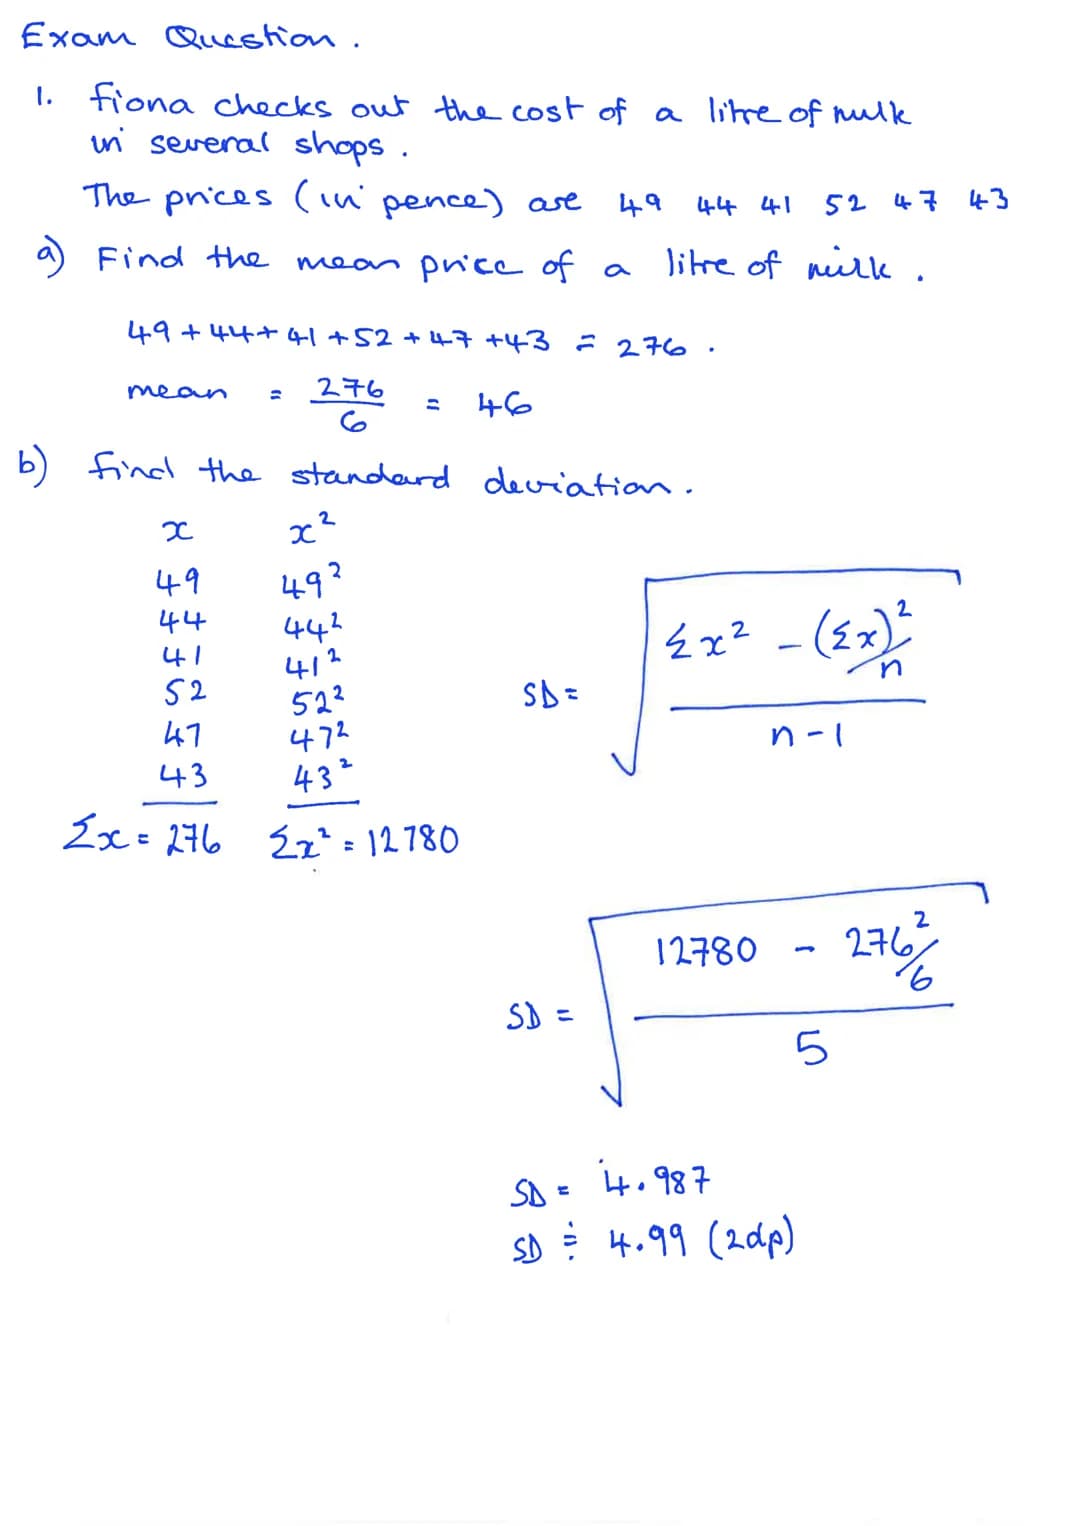 Exam Question.
1. Fiona checks out the cost of a litre of milk
in several shops.
The prices (in pence) are 49 44 41 52 47 43
a) Find the mean price of a litre of milk.
49 + 44 + 41 + 52 + 47 + 43 = 276.
mean = 276/6 = 46
b) find the standard deviation.
x x²
49 49²
44 44²
41 41²
52 52²
47 47²
43 43²
Σx = 276 Σx² = 12780
SD = √((Σx² - (Σx)²/n)/(n-1))
SD = √((12780 - 276²/6)/5)
SD = 4.987
SD ≑ 4.99 (2dp)